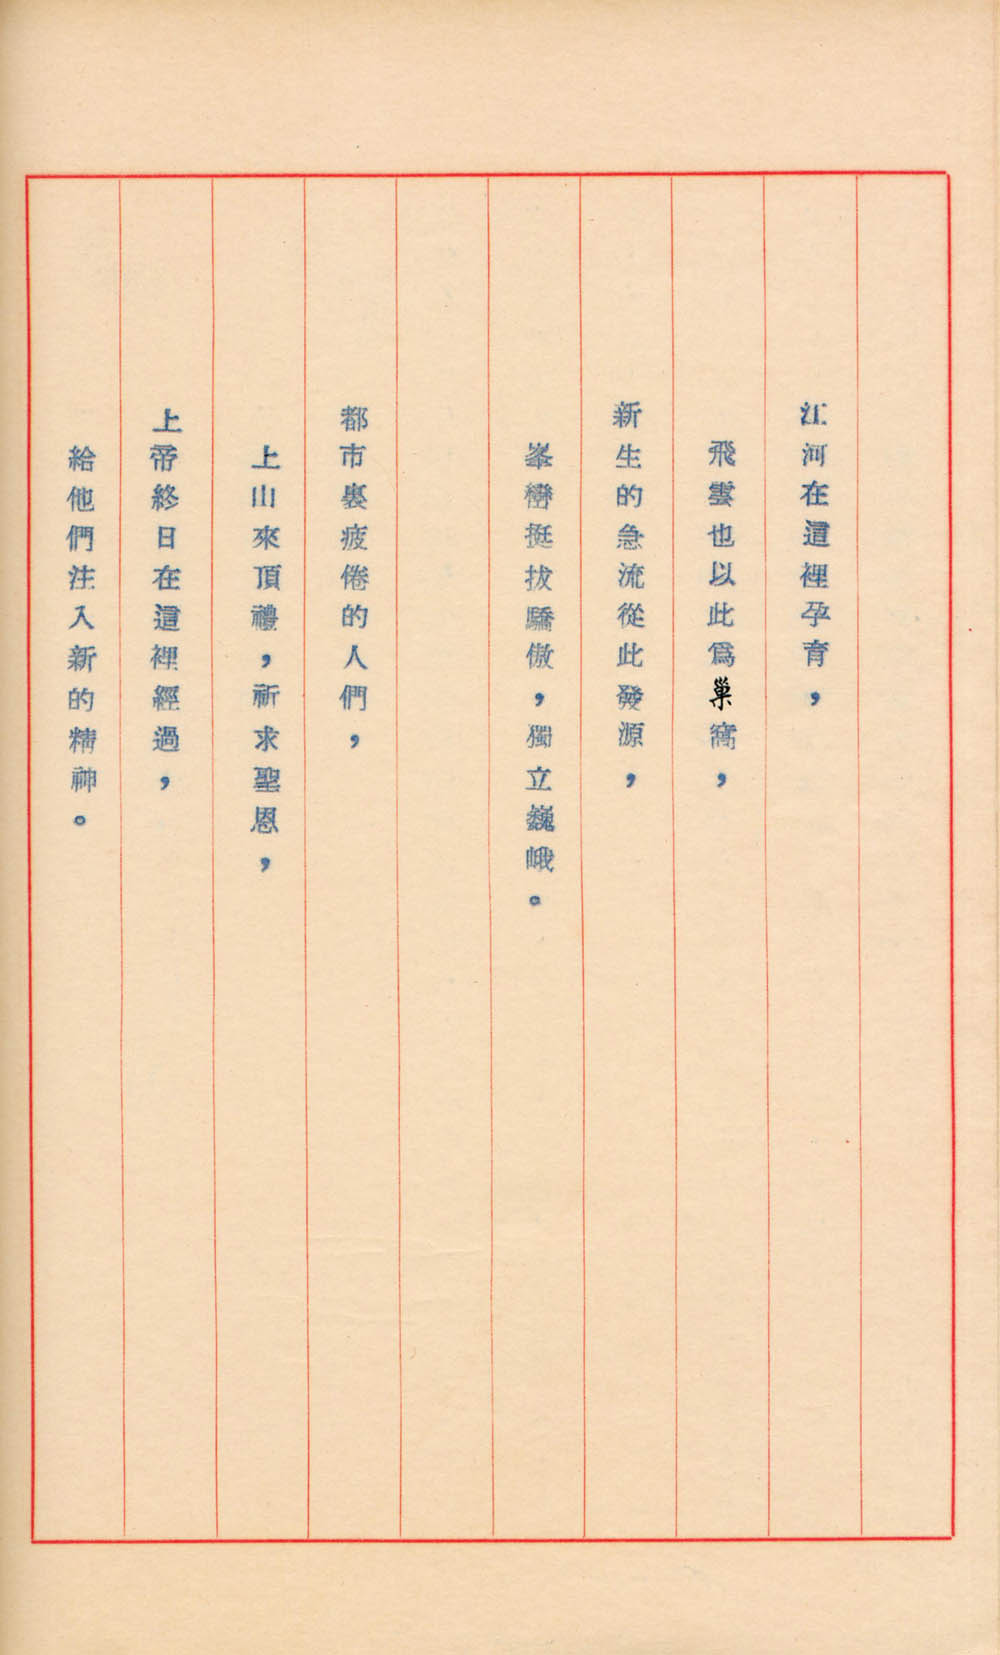 江河在這裡孕育，
飛雲也以此爲巢窩，
新生的急流從此發源，
峯巒挺拔驕傲，獨立巍峨。
都市裏疲倦的人們，
上山來頂禮，祈求聖恩，
上帝終日在這裡經過，
給他們注入新的精神。